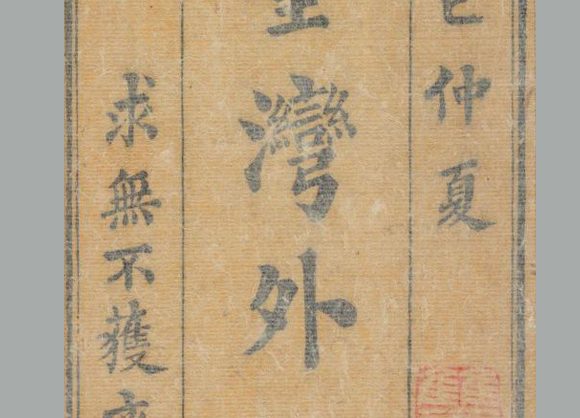 仲夏
灣外
求無不獲